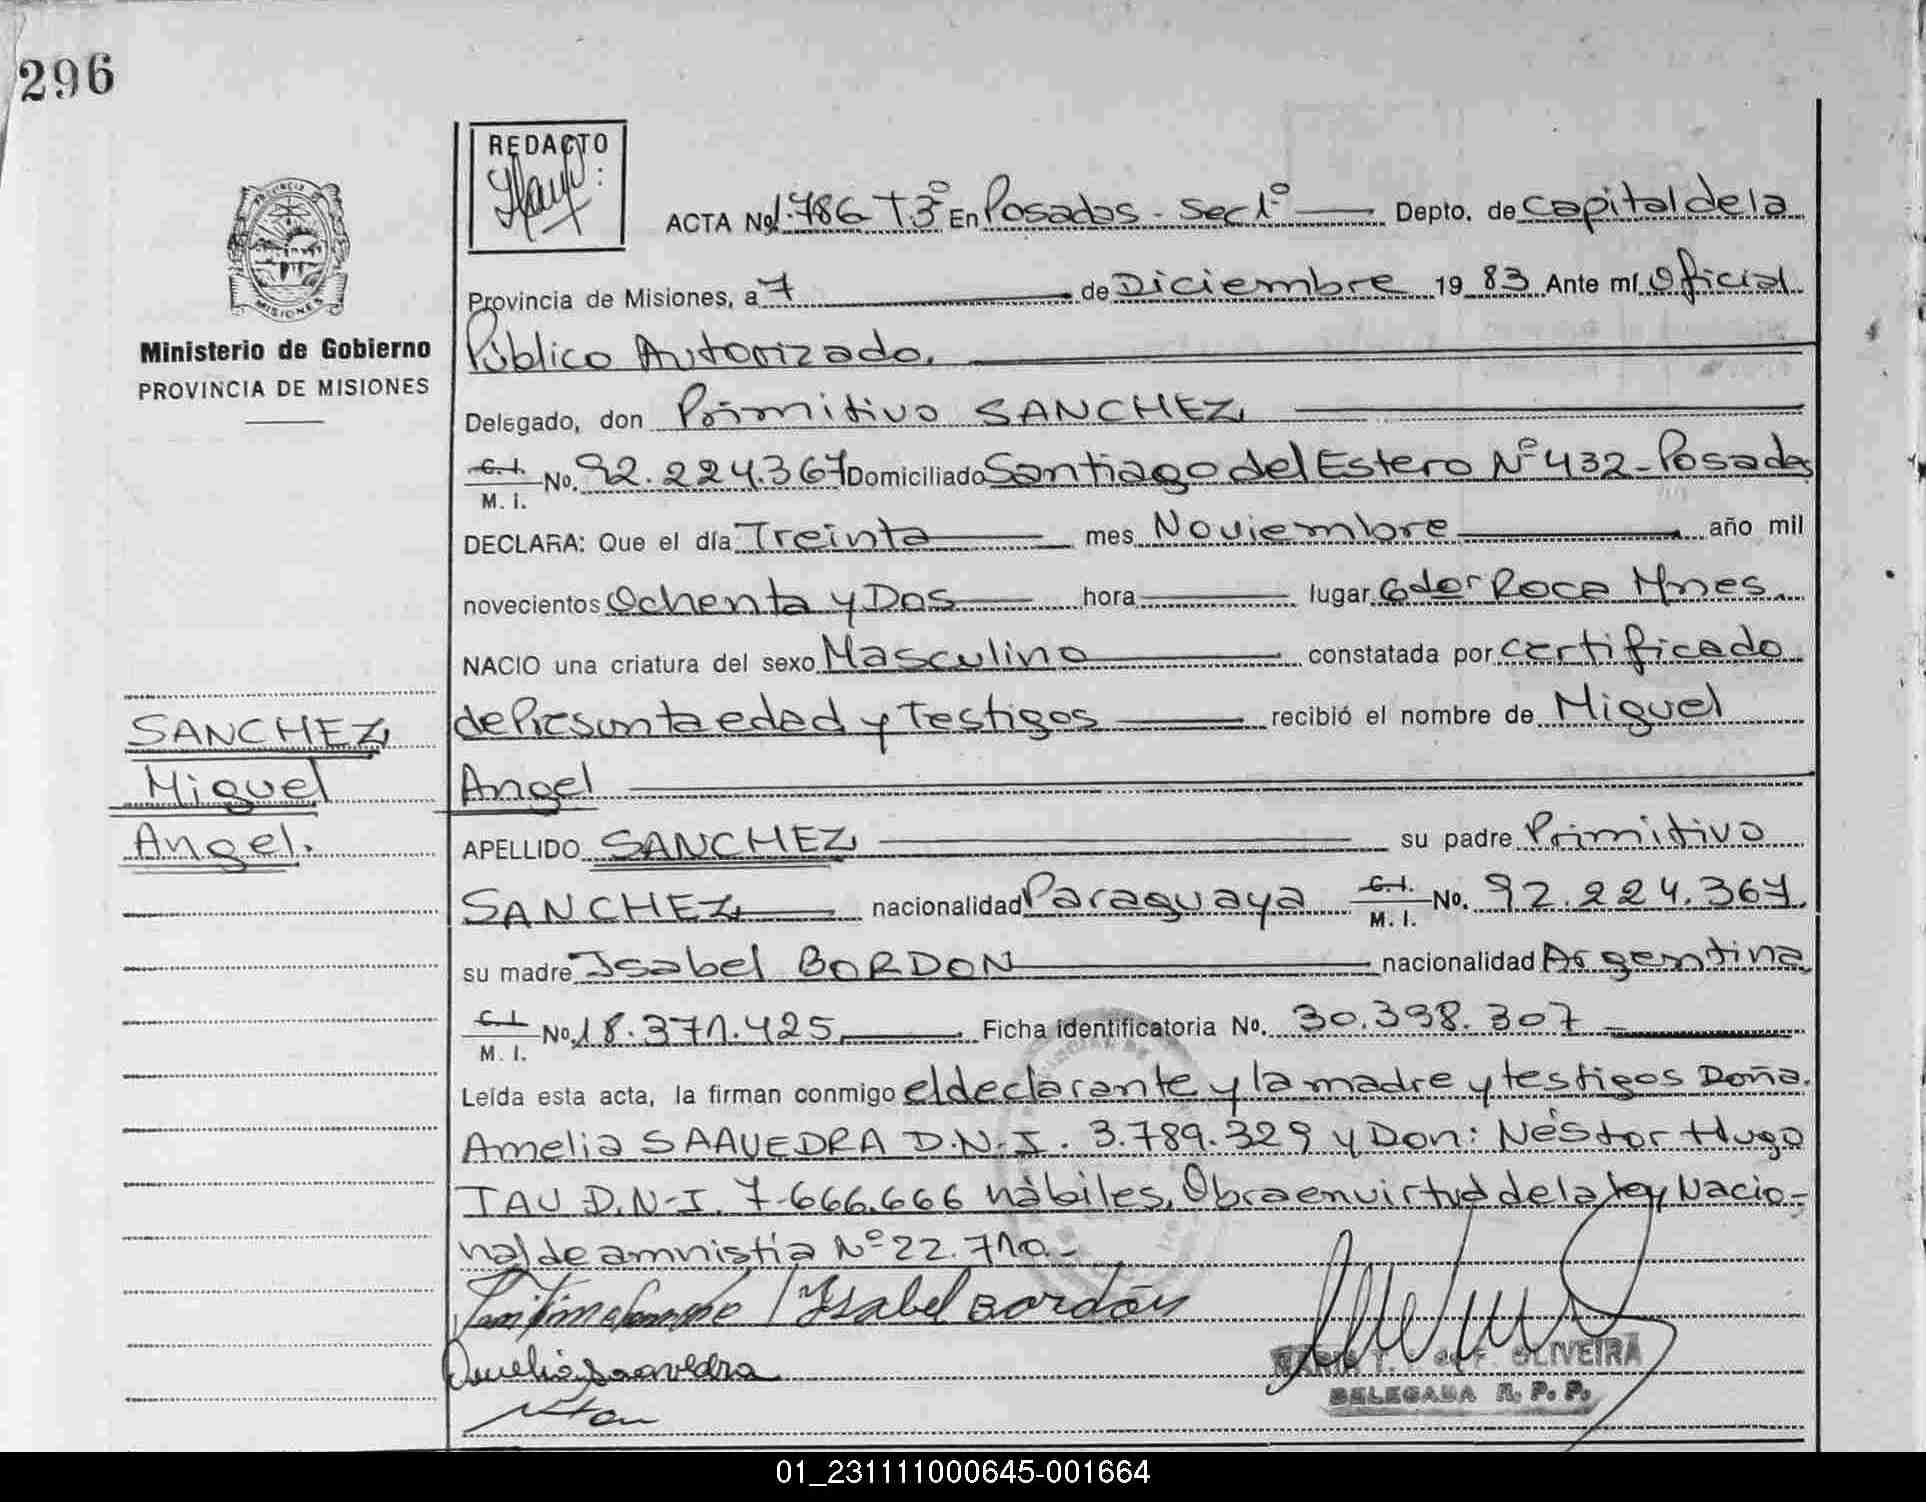 296
REDACTO
ACTA No 1.786 T3º En Posadas - Sec 1º Depto. de Capital de la
Provincia de Misiones, a 7 de Diciembre 1983 Ante mí Oficial
Público Autorizado.
Ministerio de Gobierno
PROVINCIA DE MISIONES
Delegado, don Primitivo SANCHEZ
C.I.
M. I. No. 92.224.367 Domiciliado Santiago del Estero Nº 432 - Posadas
DECLARA: Que el día Treinta mes Noviembre año mil
novecientos Ochenta y Dos hora lugar Gdor Roca Mnes.
NACIO una criatura del sexo Masculino constatada por certificado
de Presunta edad y Testigos recibió el nombre de Miguel
Angel
SANCHEZ
Miguel
Angel.
APELLIDO SANCHEZ su padre Primitivo
SANCHEZ nacionalidad Paraguaya C.I. M. I. No. 92.224.367.
su madre Isabel BORDON nacionalidad Argentina
C.I.
M. I. No. 18.371.425 Ficha identificatoria No. 30.398.307
Leída esta acta, la firman conmigo el declarante y la madre y testigos Doña.
Amelia SAAVEDRA D.N.I. 3.789.329 y Don: Néstor Hugo
TAU D.N.I. 7.666.666 hábiles, Obra en virtud de la ley Nacio-
nal de amnistía Nº 22.710.-
Isabel Bordón
Amelia Saavedra
OLIVEIRA
DELEGADA R. P. P.
PROVINCIA
MISIONES
01_231111000645-001664